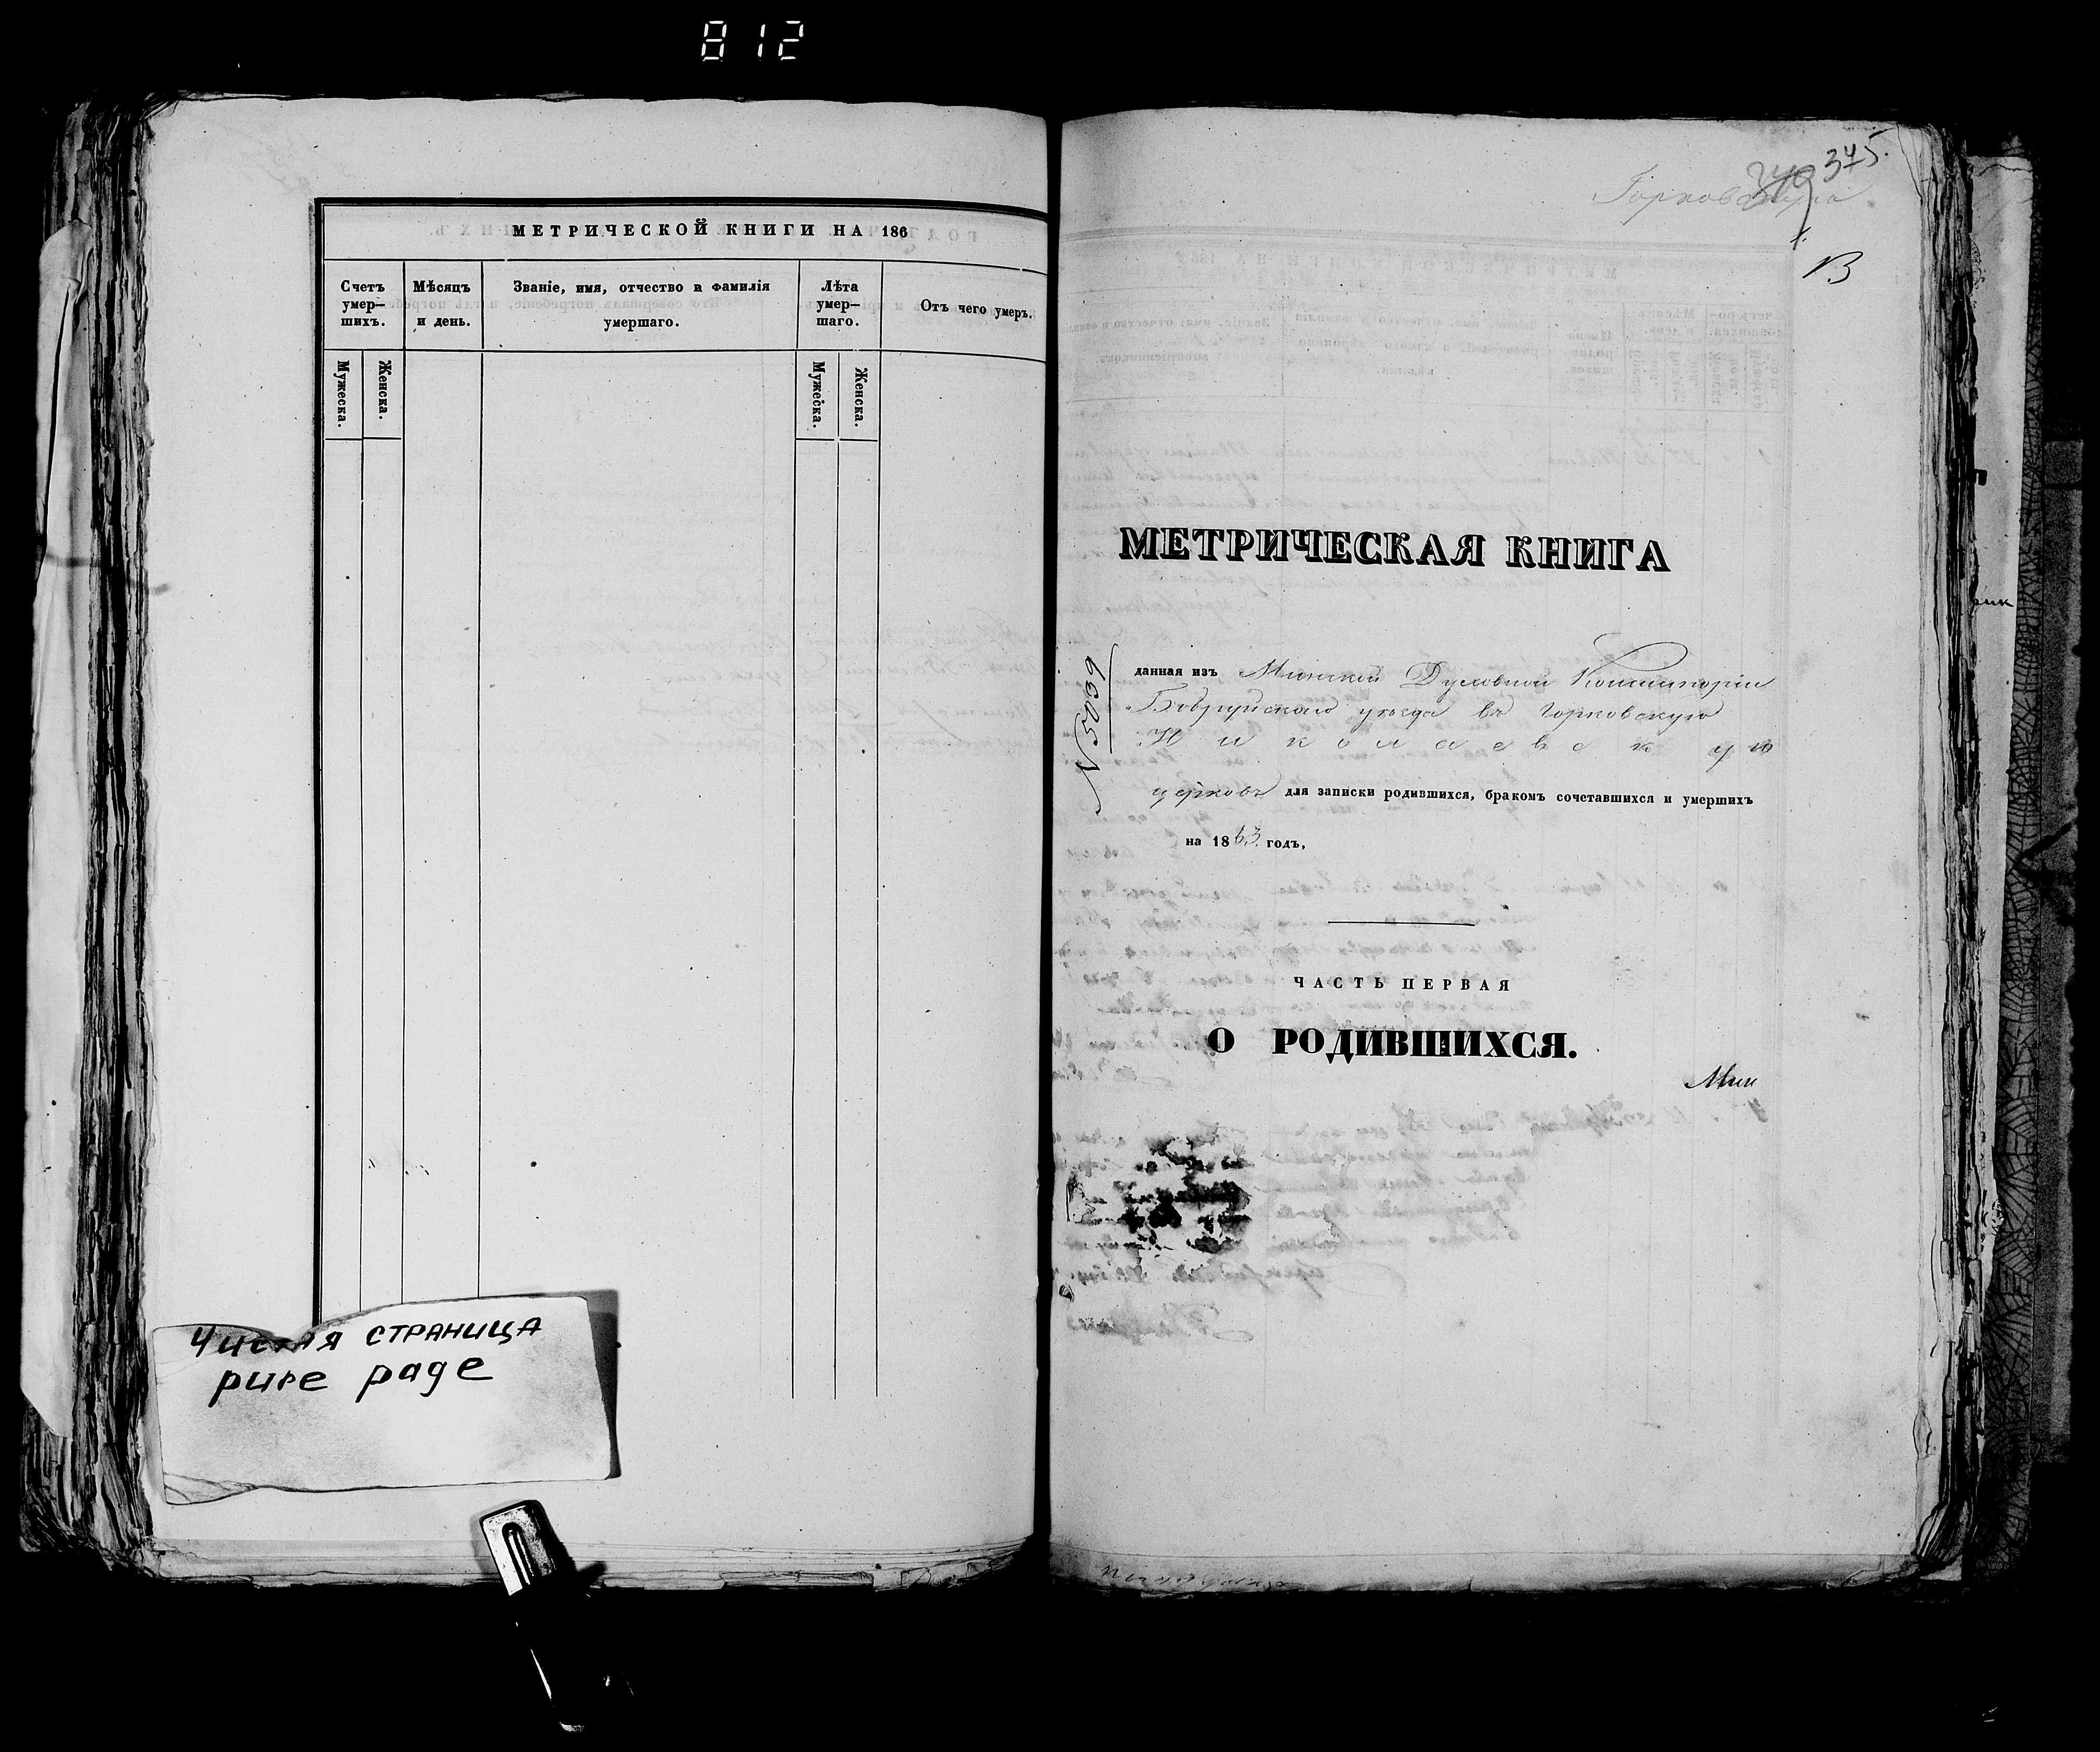 812
МЕТРИЧЕСКОЙ КНИГИ НА 186
Счетъ умер—шихъ.
Мѣсяцъ и день.
Званіе, имя, отчество и фамилія умершаго.
Лѣта умер—шаго.
Отъ чего умеръ.
Мужеска.
Женска.
Мужеска.
Женска.
Чистая страница
pure page
375.
Горковская
В
МЕТРИЧЕСКАЯ КНИГА
№ 5039
данная изъ Минской Духовной Консисторіи
Бобруйскаго уѣзда въ Горковскую
Николаевскую
церковь для записки родившихся, бракомъ сочетавшихся и умершихъ
на 1863 годъ,
ЧАСТЬ ПЕРВАЯ
О РОДИВШИХСЯ.
Мин